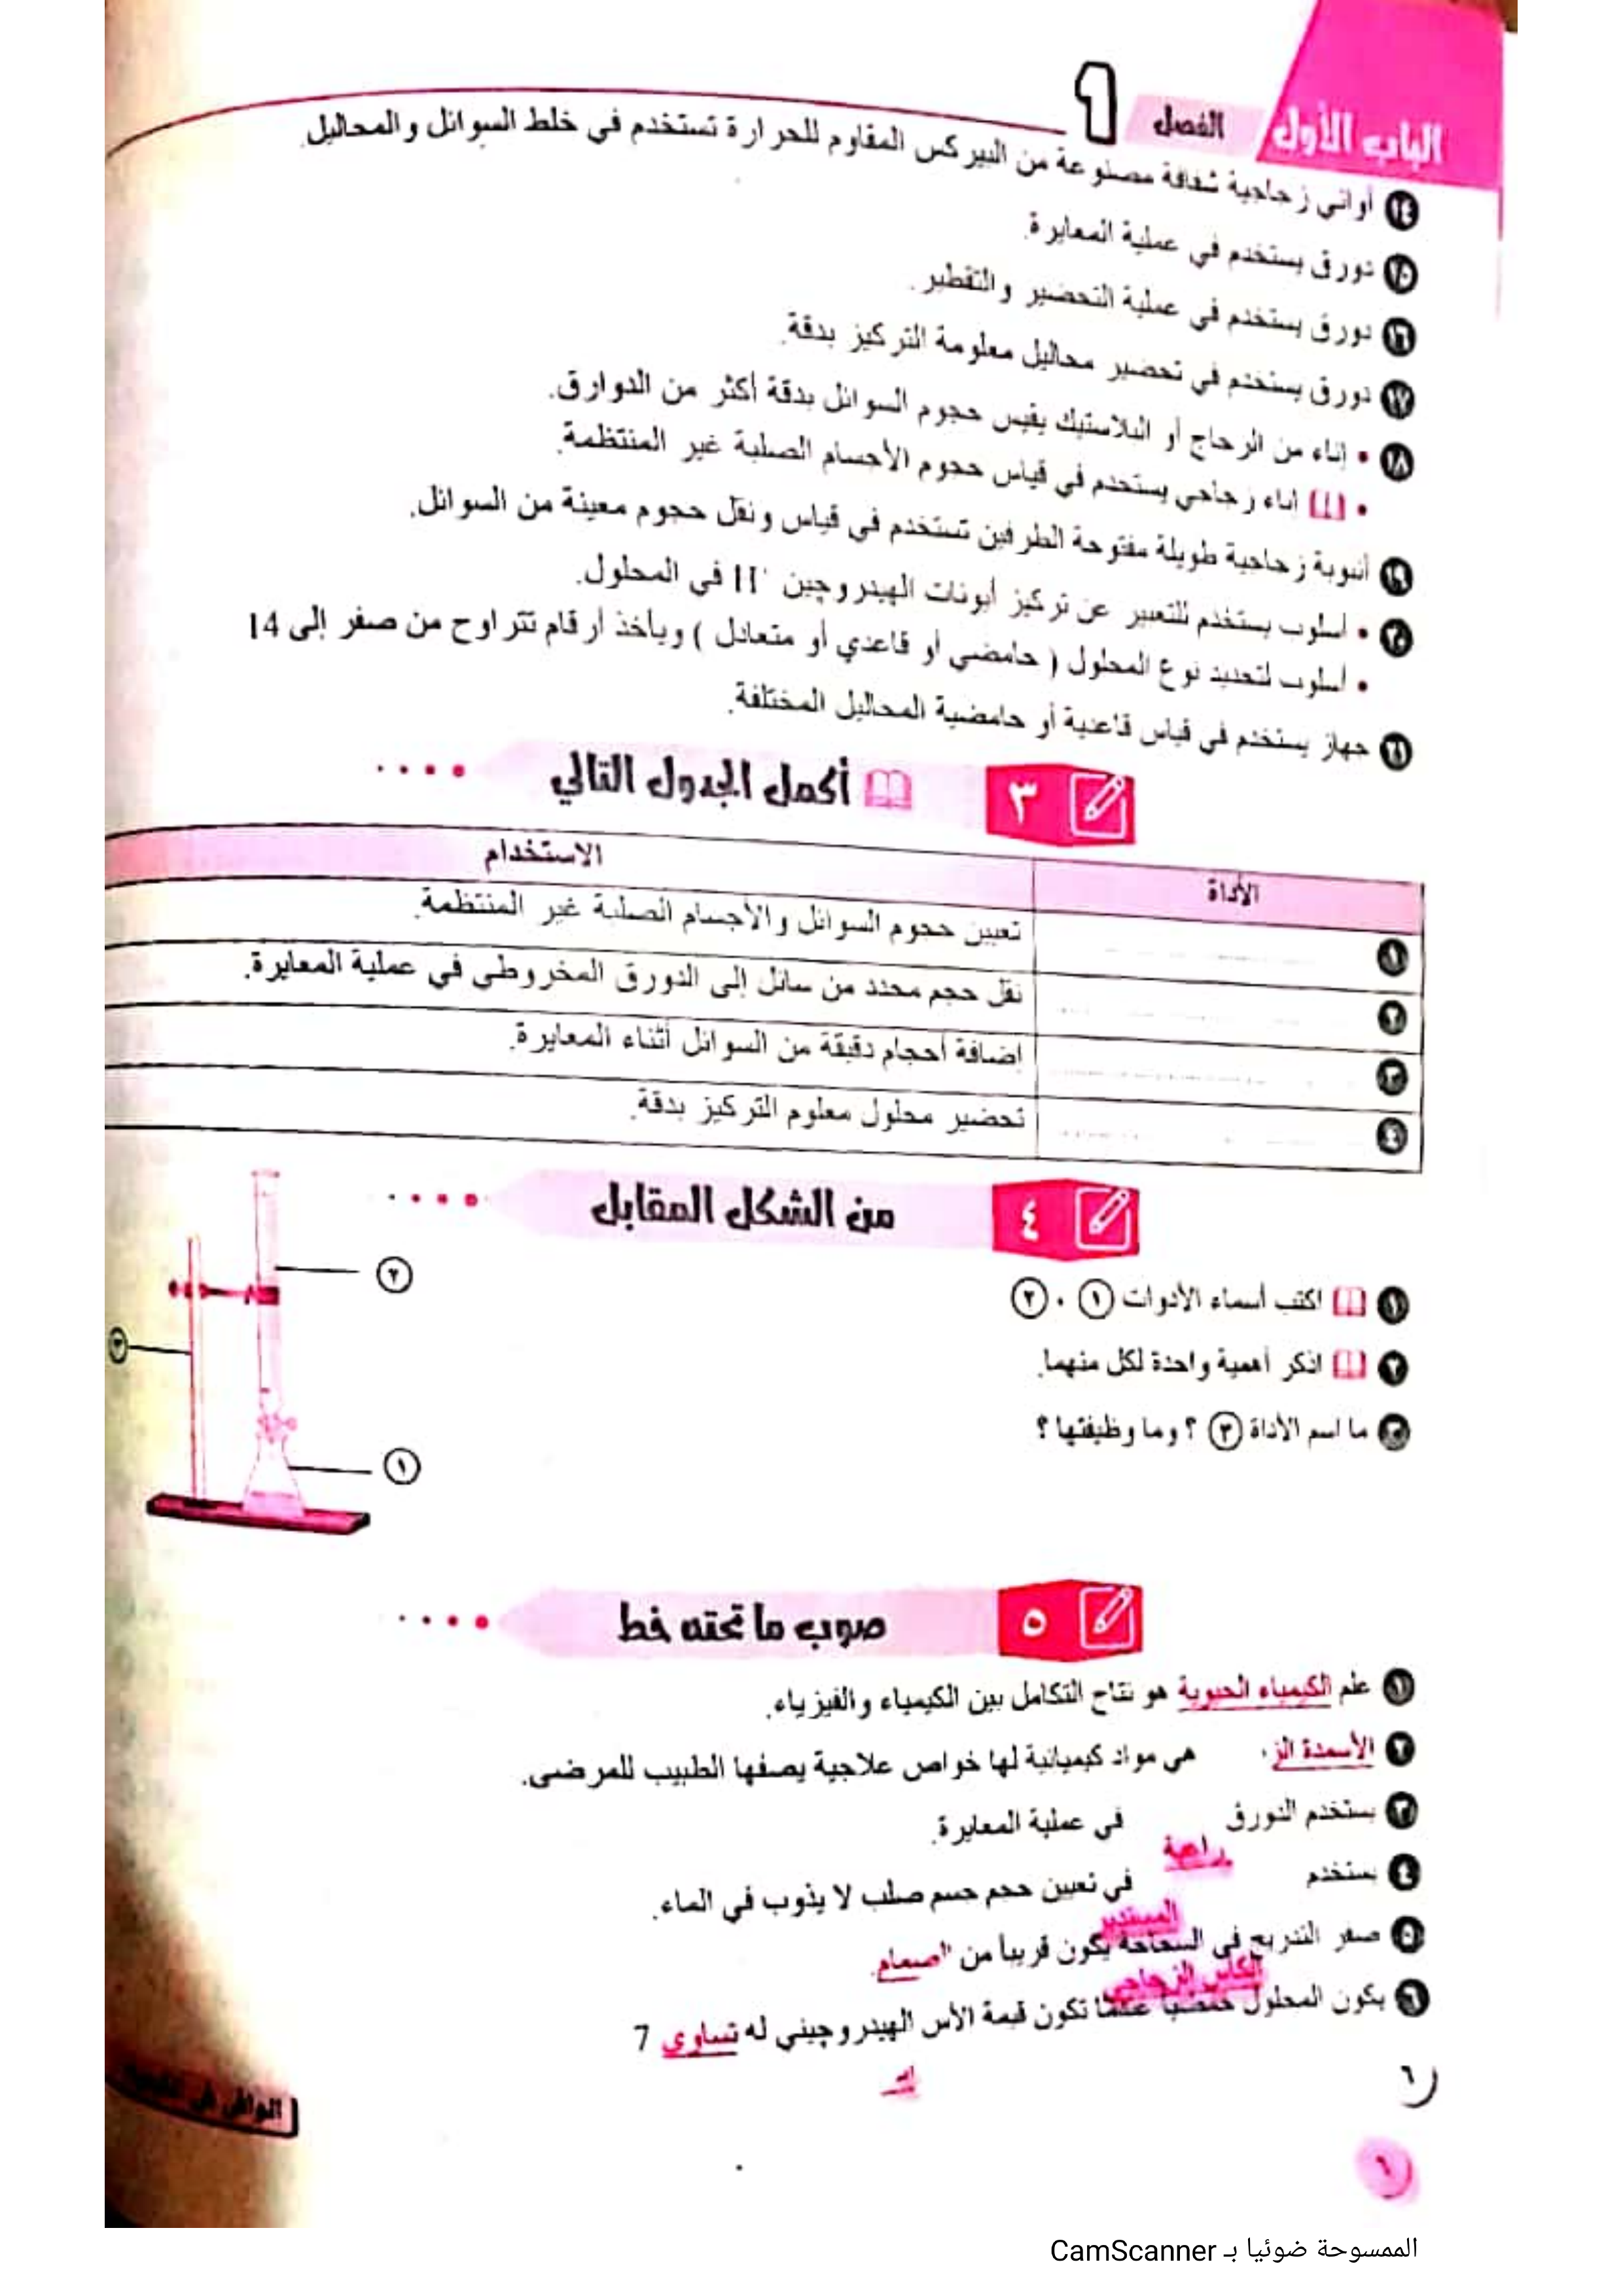 الباب الأول
الفصل 1
١٤ أواني زجاجية شفافة مصنوعة من البيركس المقاوم للحرارة تستخدم في خلط السوائل والمحاليل.
١٥ دورق يستخدم في عملية المعايرة.
١٦ دورق يستخدم في عملية التحضير والتقطير.
١٧ دورق يستخدم في تحضير محاليل معلومة التركيز بدقة.
١٨ • إناء من الزجاج أو البلاستيك يقيس حجوم السوائل بدقة أكثر من الدوارق.
• إناء زجاجي يستخدم في قياس حجوم الأجسام الصلبة غير المنتظمة.
١٩ أنبوبة زجاجية طويلة مفتوحة الطرفين تستخدم في قياس ونقل حجوم معينة من السوائل.
٢٠ • أسلوب يستخدم للتعبير عن تركيز أيونات الهيدروجين H⁺ في المحلول.
• أسلوب لتحديد نوع المحلول ( حامضي أو قاعدي أو متعادل ) ويأخذ أرقام تتراوح من صفر إلى 14
٢١ جهاز يستخدم في قياس قاعدية أو حامضية المحاليل المختلفة.
٣ أكمل الجدول التالي
الأداة الاستخدام
١ تعيين حجوم السوائل والأجسام الصلبة غير المنتظمة.
٢ نقل حجم محدد من سائل إلى الدورق المخروطي في عملية المعايرة.
٣ إضافة أحجام دقيقة من السوائل أثناء المعايرة.
٤ تحضير محلول معلوم التركيز بدقة.
٤ من الشكل المقابل
١ اكتب أسماء الأدوات ١ ، ٢
٢ اذكر أهمية واحدة لكل منهما.
٣ ما اسم الأداة ٣ ؟ وما وظيفتها ؟
٢
٣
١
٥ صوب ما تحته خط
١ علم الكيمياء الحيوية هو نتاج التكامل بين الكيمياء والفيزياء.
٢ الأسمدة الز هي مواد كيميائية لها خواص علاجية يصفها الطبيب للمرضى.
٣ يستخدم الدورق في عملية المعايرة.
راعية
٤ يستخدم في تعيين حجم جسم صلب لا يذوب في الماء.
المستدير
٥ صفر التدريج في السحاحة يكون قريباً من الصمام.
الكأس الزجاجي
٦ يكون المحلول حمضياً عندما تكون قيمة الأس الهيدروجيني له تساوي 7
٦
الوافي في
الممسوحة ضوئيا بـ CamScanner